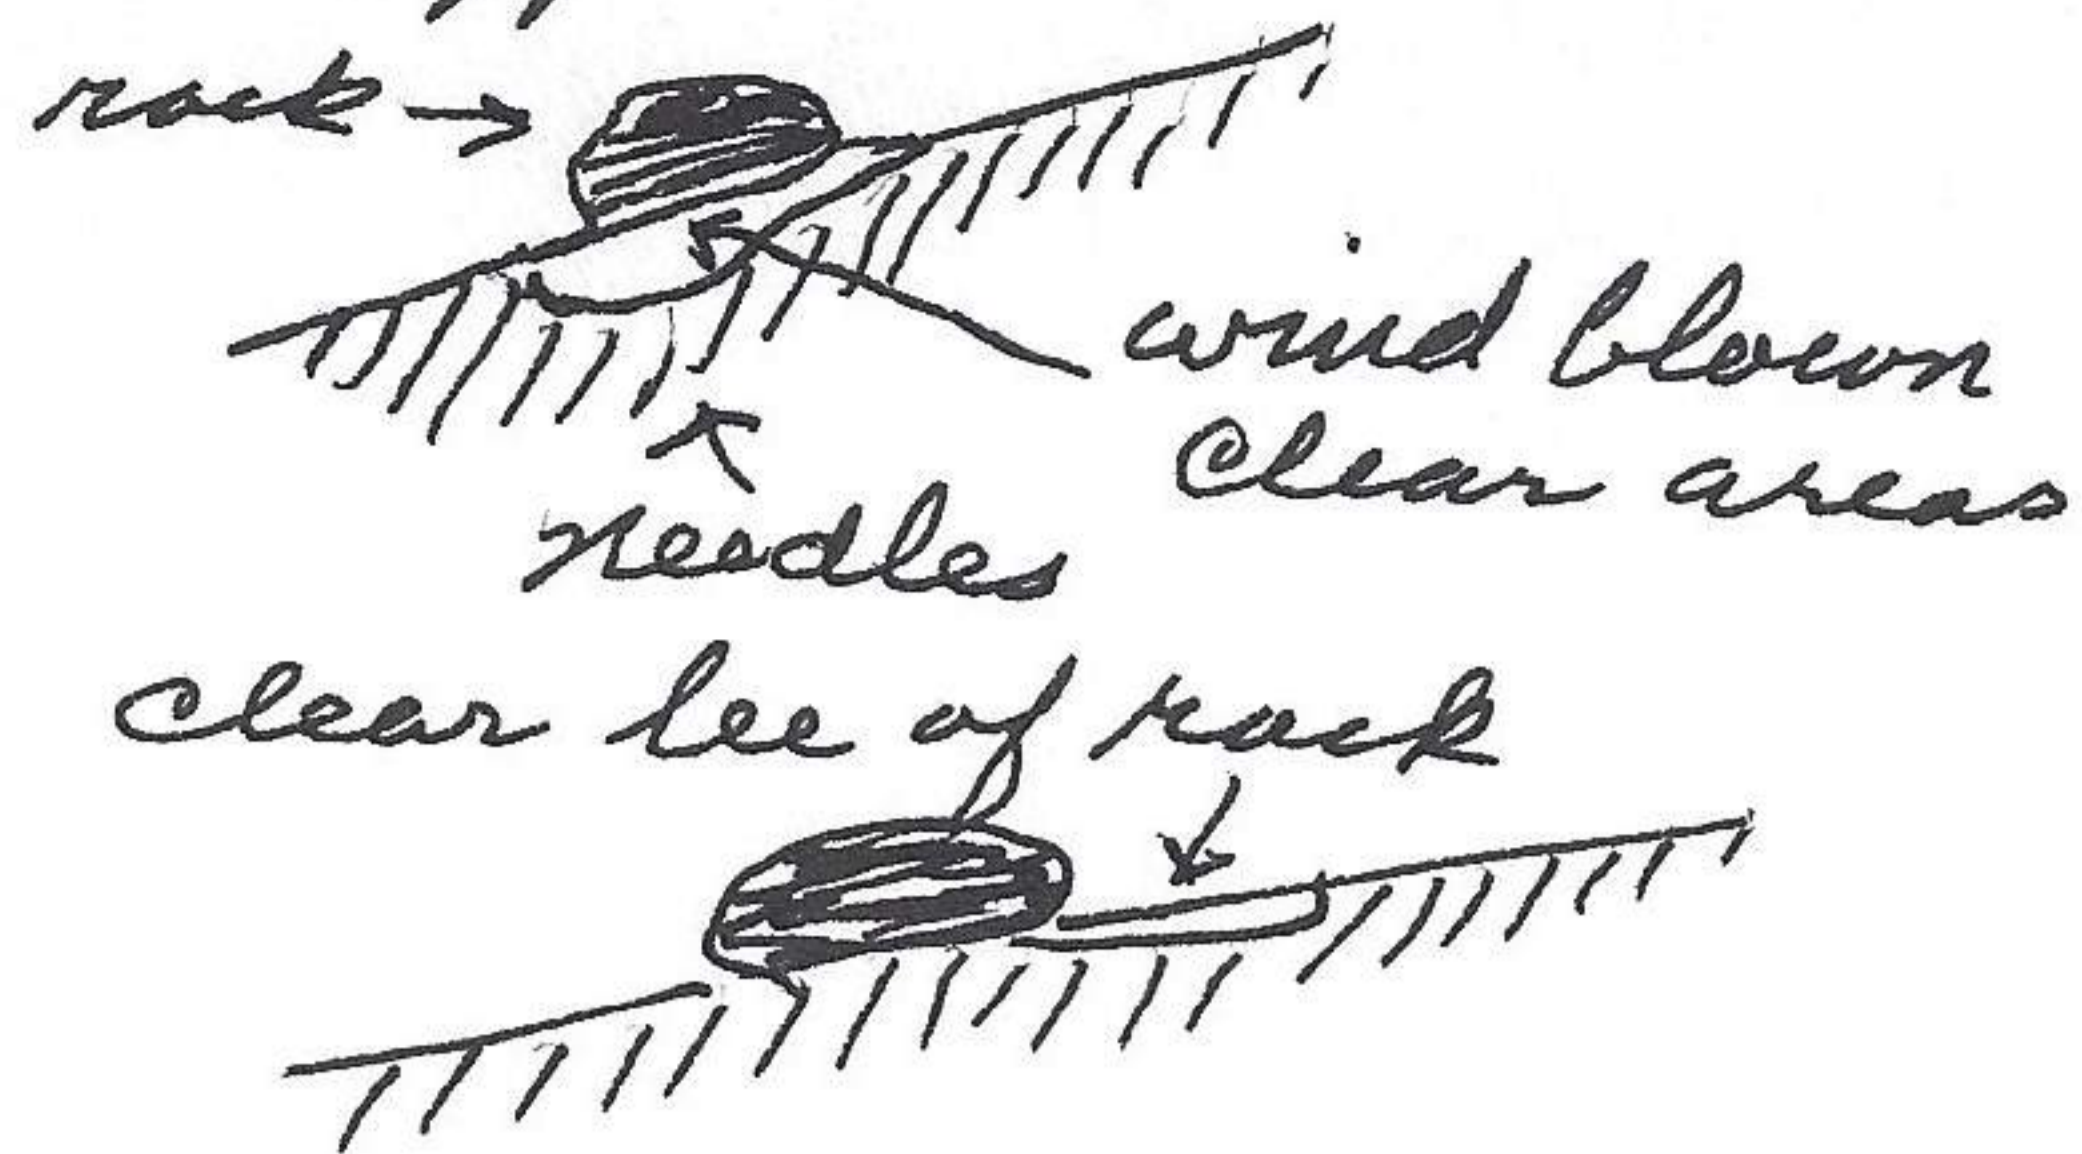 rock
wind blown
clear areas
needles
clear lee of rock